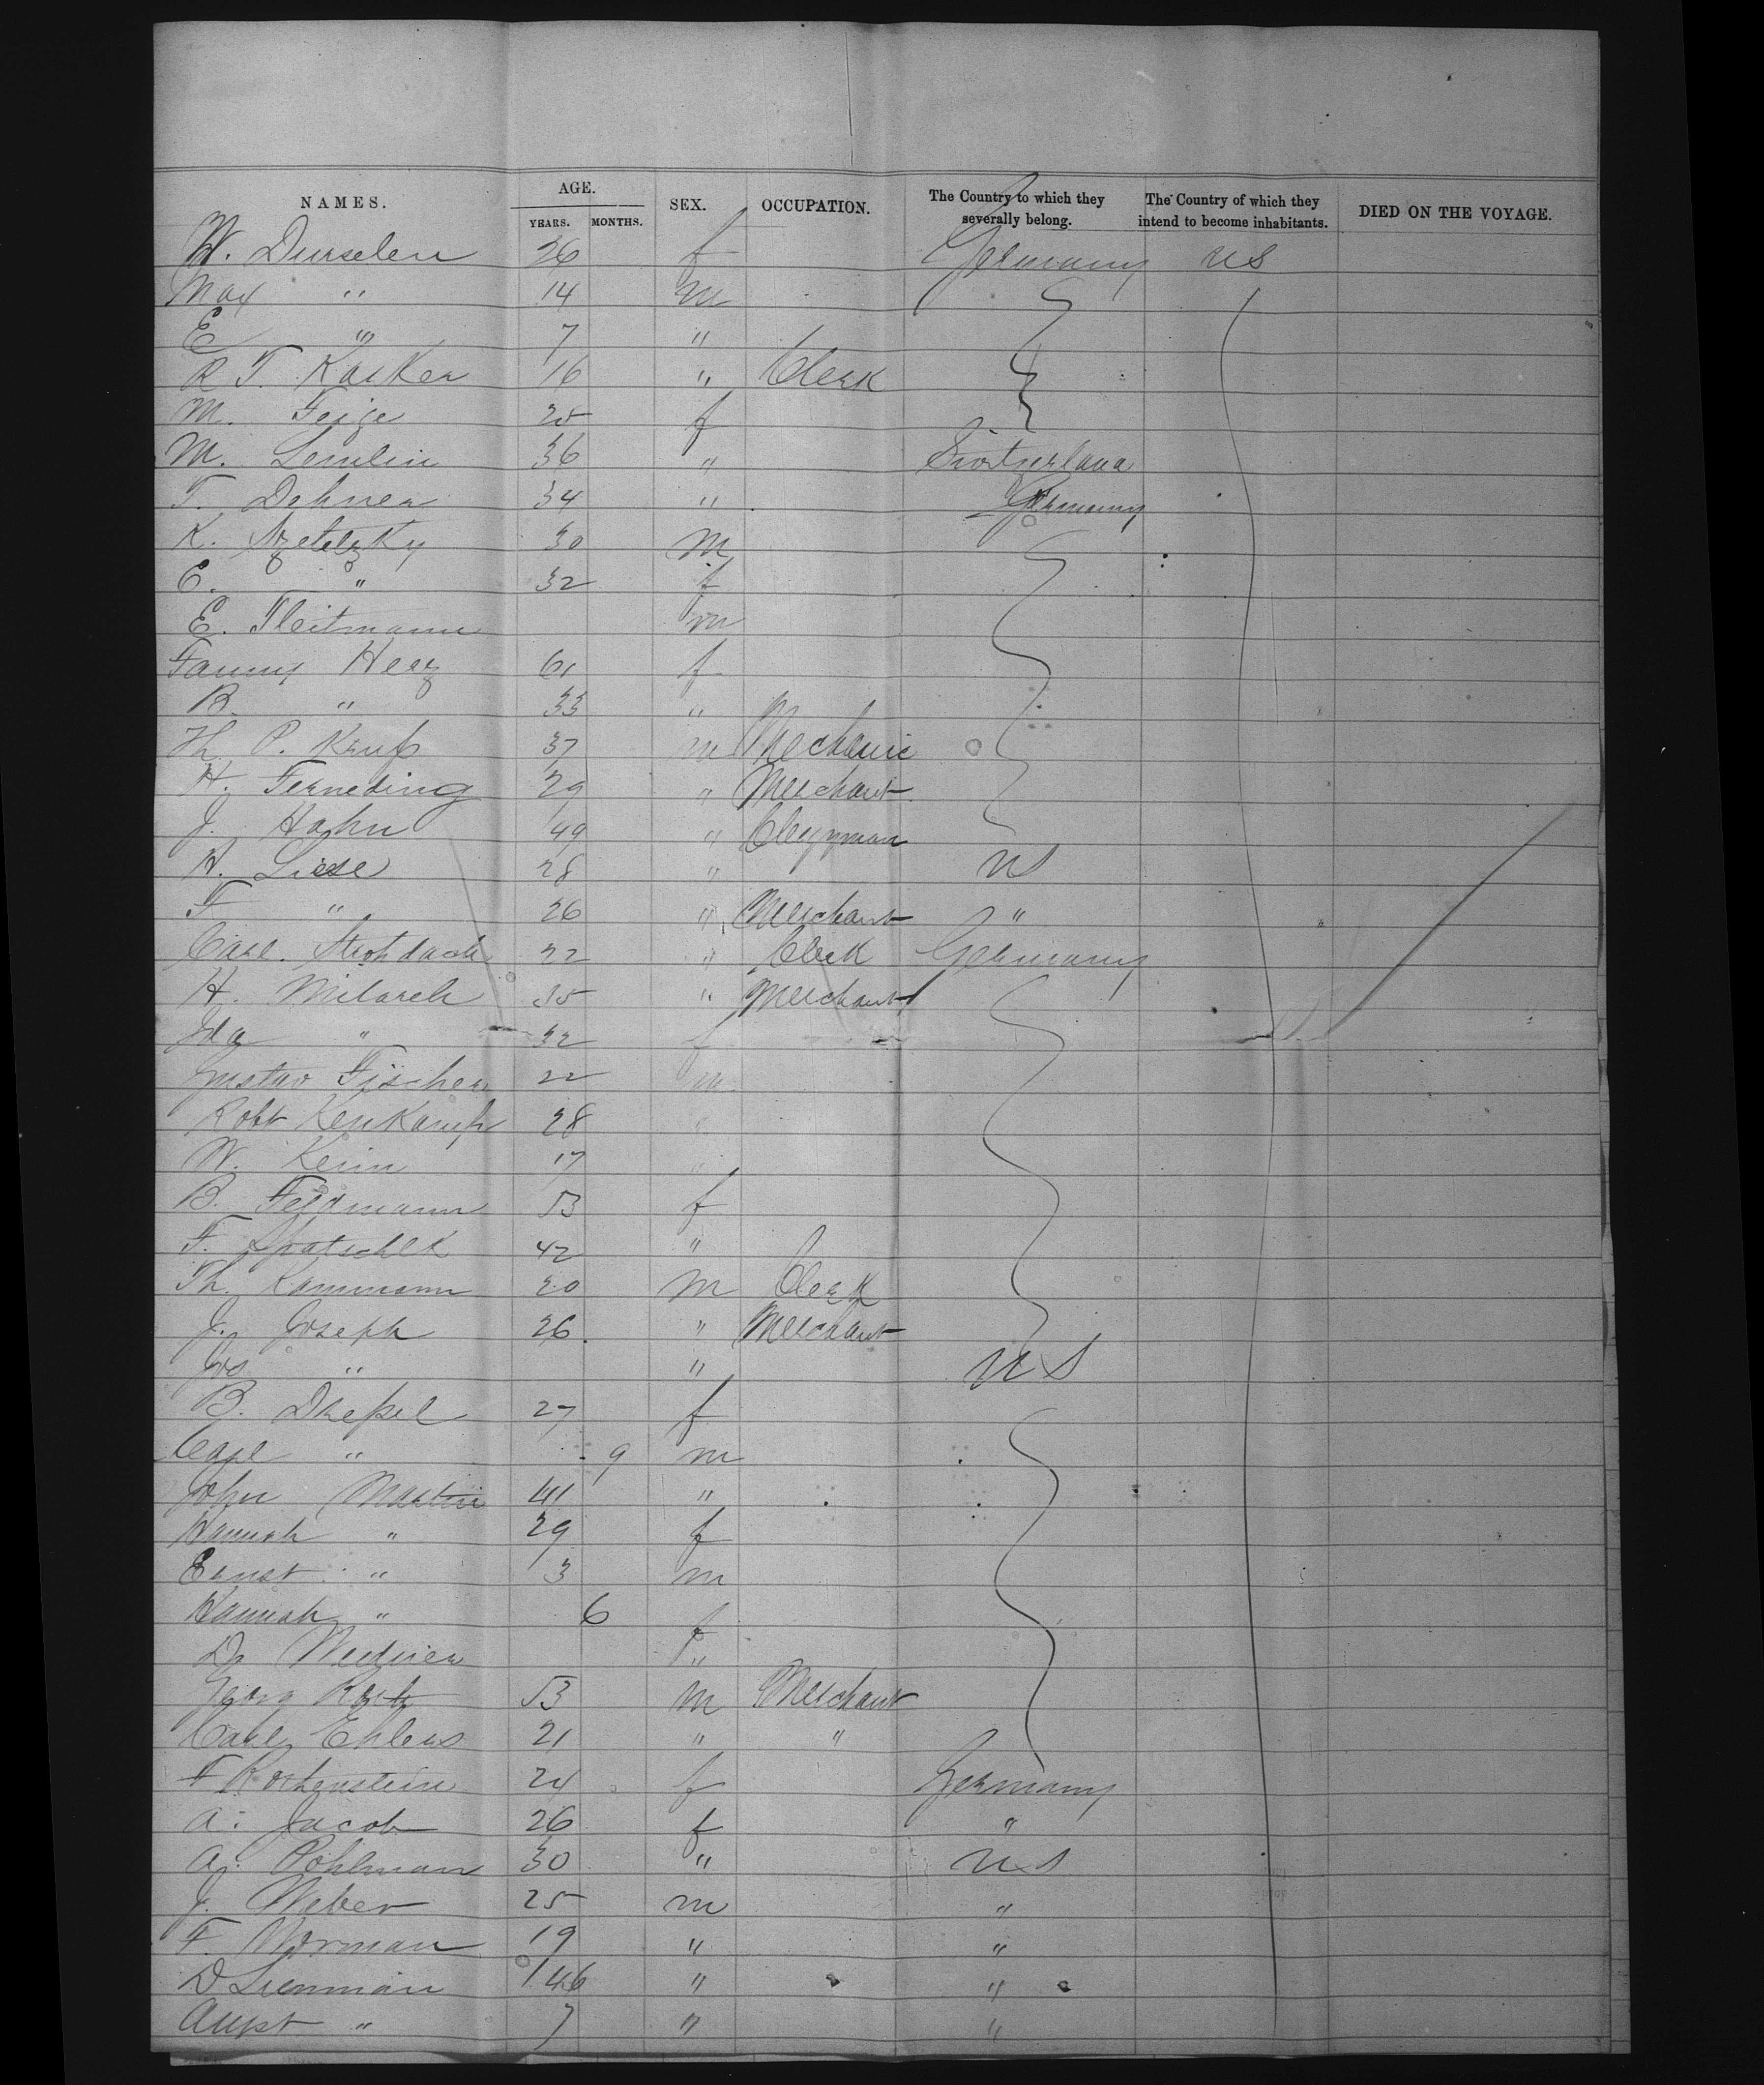 NAMES. AGE. YEARS. MONTHS. SEX. OCCUPATION. The Country to which they severally belong. The Country of which they intend to become inhabitants. DIED ON THE VOYAGE.
W. Durselen 26 f Germany US
Max " 14 m
E " 7 "
R T. Karker 16 " Clerk
M. Feige 25 f
M. Lemlin 36 " Switzerland
T. Dehner 34 " Germany
K. 30 m
C. " 32 f
E. Fleitmann m
Fanny Herz 61 f
B. " 33 "
Th. P. Krup 37 m Mechanic
H. Ferneding 29 " Merchant
J. Hahn 49 " Clergyman
H. Liese 28 " US
F " 26 " Merchant "
Carl. Strohdach 22 " Clerk Germany
H. Milarch 35 " Merchant
Ida " 32 f
Gustav Fischer 22 m
Robt Kenkamp 28 "
W. Keim 17 "
B. Feldmann 53 f
F. Spatschek 42 "
Th. Kammann 20 m Clerk
J. Joseph 26. " Merchant
Jos " " US
B. Drepel 27 f
Carl " 9 m
John Martin 41 "
Hannah " 29 f
Ernst " 3 m
Hannah " 6 f
Dr "
Georg 53 m Merchant
Carl Ehlers 21 " "
F Rothenstein 24 f Germany
A. Jacob 26 f "
A. Pohlman 30 " US
J. Weber 25 m "
F. Norman 19 "  "
D Lienman 46 " "
Augst " 7 " "